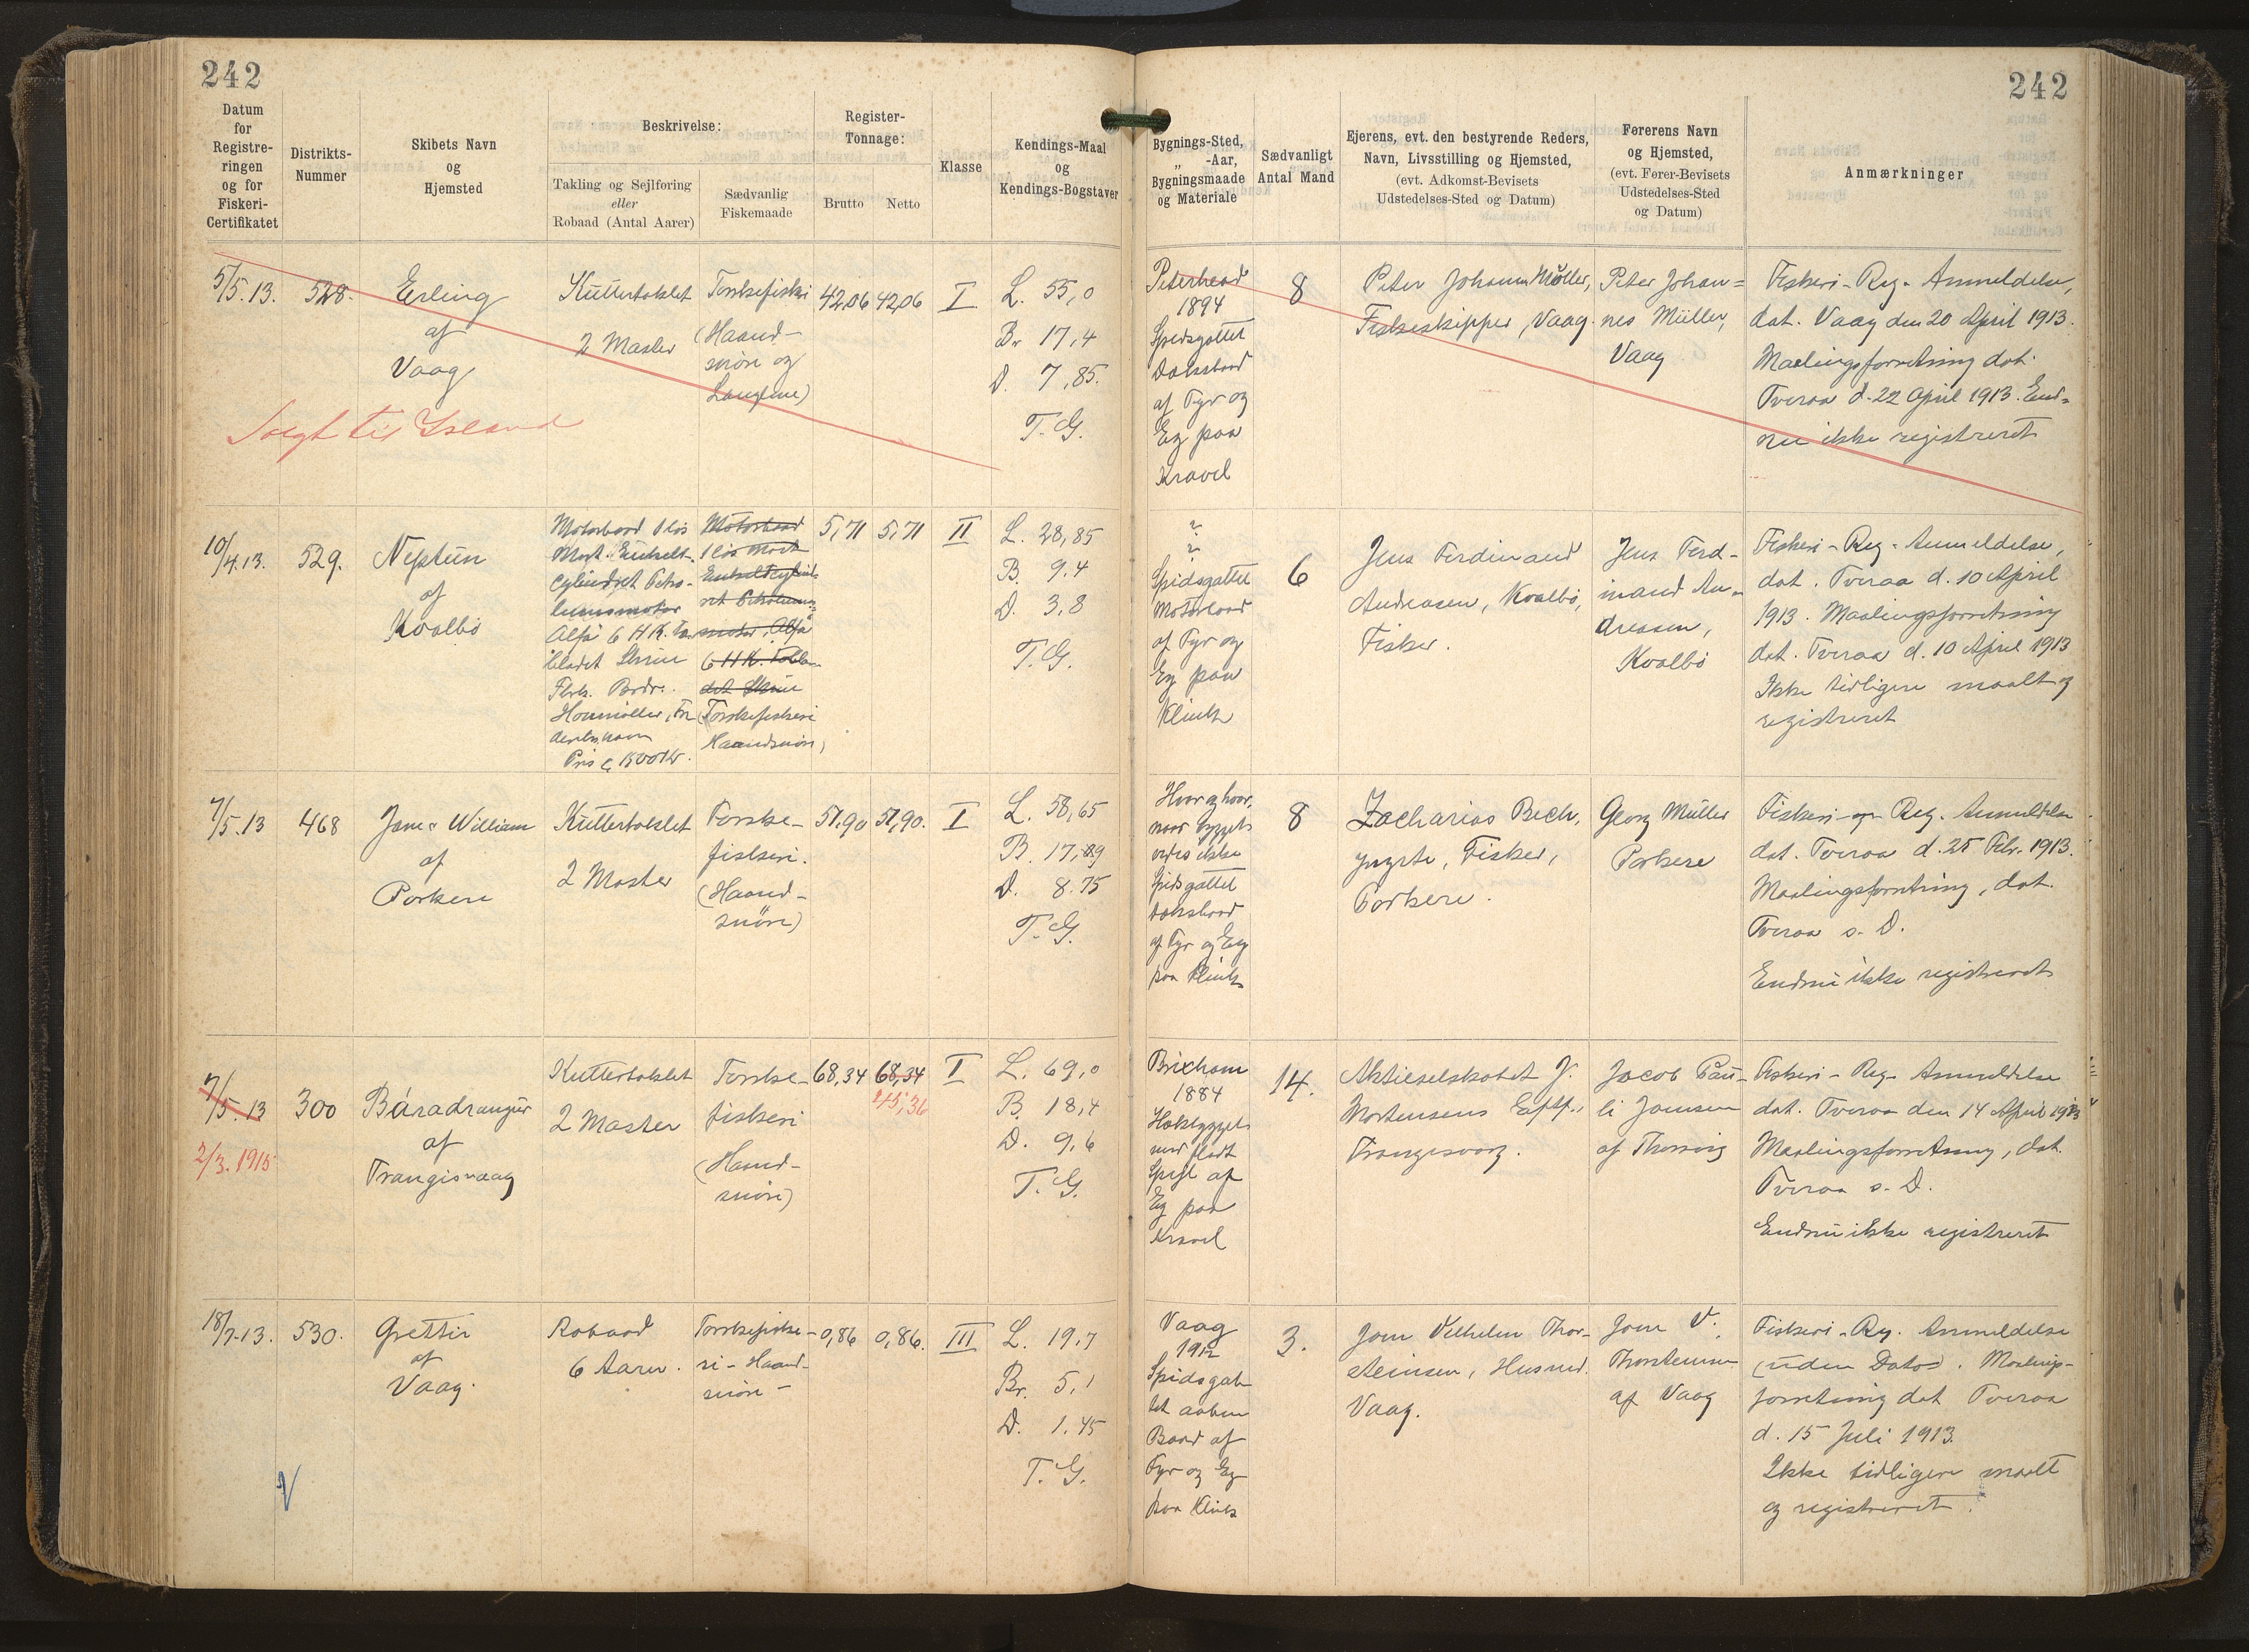 242
242
Datum
for
Registre-
ringen
og for
Fiskeri-
Certifikatet
Distrikts-
Nummer
Skibets Navn
og
Hjemsted
Beskrivelse:
Takling og Sejlføring
eller
Robaad (Antal Aarer)
Sædvanlig
Fiskemaade
Register-
Tonnage:
Brutto
Netto
Klasse
Kendings-Maal
og
Kendings-Bogstaver
Bygnings-Sted,
„ -Aar,
Bygningsmaade
og Materiale
Sædvanligt
Antal Mand
Ejerens, evt. den bestyrende Reders,
Navn, Livsstilling og Hjemsted,
(evt. Adkomst-Bevisets
Udstedelses-Sted og Datum)
Førerens Navn
og Hjemsted,
(evt. Fører-Bevisets
Udstedelses-Sted
og Datum)
Anmærkninger
5/5.13.
528.
Erling
af
Vaag
Solgt til Island
Kuttertaklet
2 Master
Torskefiskeri
(Haand-
snøre og
Langline)
42,06
42,06
I
L. 55,0
Br 17,4
D. 7,85.
T.G.
Peterhead
1894
Spidsgattet
Dæksbaad
af Fyr og
Eg paa
Kravel
8
Peter Johann Müller,
Fiskeskipper, Vaag.
Peter Johan=
nes Müller,
Vaag
Fiskeri-Reg. Anmeldelse,
dat. Vaag den 20 April 1913.
Maalingsforretning dat.
Tveraa d. 22 April 1913. End-
nu ikke registreret
10/4.13.
529.
Neptun
af
Kvalbø
Motorbaad 1 løs
Mast. Enkelt-
cylindret Petro-
leumsmotor
Alfa 6 H.K. To
bladet Skrue
Fbrk. Brdr.
Houmøller, Fre
derikshavn
Pris c. 1500 Kr.
Motorbaad
1 løs Mast
Enkeltcylind-
ret Petroleums-
motor „Alfa"
6 H.K. Tobla-
det Skrue
(Torskefiskeri
Haandsnøre)
5,71
5,71
II
L. 28,85
B. 9,4
D. 3,8
T.G.
?
?
Spidsgattet
Motorbaad
af Fyr og
Eg paa
Klink
6
Jens Ferdinand
Andreasen, Kvalbø,
Fisker.
Jens Ferd-
inand An-
dreasen,
Kvalbø
Fiskeri-Reg. Anmeldelse,
dat. Tveraa d. 10 April
1913. Maalingsforretning
dat. Tveraa d. 10 April 1913
Ikke tidligere maalt og
registreret
7/5.13
468
Jane & William
af
Porkere
Kuttertaklet
2 Master
Torske-
fiskeri.
(Haand-
snöre)
51,90
51,90.
I
L. 58,65
B. 17,89
D. 8.75
T.G.
Hvor og hvor-
naar bygget
vides ikke
Spidsgattet
Dæksbaad
af Fyr og Eg
paa Klink
8
Zacharias Bech,
yngste, Fisker,
Porkere.
Georg Müller
Porkere
Fiskeri-og Reg. Anmeldelse
dat. Tveraa d. 25 Febr. 1913.
Maalingsforretning, dat.
Tveraa s. D.
Endnu ikke registreret
7/5.13
2/3.1915
300
Báradrangur
af
Trangisvaag
Kuttertaklet
2 Master
Torske-
fiskeri
(Haand-
snøre)
68,34
68,34
45,36
I
L. 69,0
B. 18,4
D. 9,6
T.G.
Brixham
1884
Hækbygget
med fladt
Spejl af
Eg paa
Kravel
14.
Aktieselskabet J.
Mortensens Eftf.,
Trangisvaag.
Jacob Pau-
li Joensen
af Thorvig
Fiskeri-Reg. Anmeldelse
dat. Tveraa den 14 April 1913
Maalingsforretning, dat.
Tveraa s. D.
Endnu ikke registreret
18/7.13.
530.
Grettir
af
Vaag.
Robaad
6 Aarer.
Torskefiske-
ri - Haand-
snøre -
0,86
0,86.
III
L. 19,7
Br. 5,1
D. 1,45
T.G.
Vaag
1912
Spidsgat-
tet aaben
Baad af
Fyr og Eg
paa Klink
3.
Joen Vilhelm Thor-
steinsen, Husmd.
Vaag.
Joen V.
Thorsteinsen
af Vaag
Fiskeri-Reg. Anmeldelse
(uden Dato). Maalings-
forretning dat Tveraa
d. 15 Juli 1913.
Ikke tidligere maalt
og registreret.